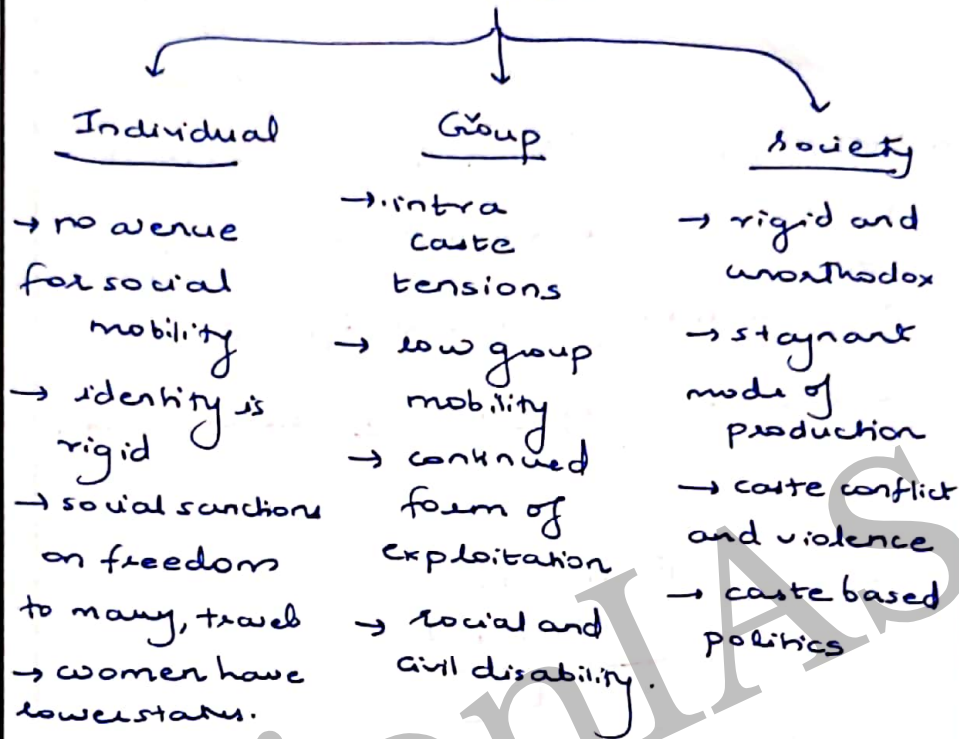 Individual
→ no avenue
for social
mobility
→ identity is
rigid
→ social sanctions
on freedom
to marry, travel
→ women have
lower status.
Group
→ intra
caste
tensions
→ low group
mobility
→ continued
form of
exploitation
→ social and
civil disability.
society
→ rigid and
unorthodox
→ stagnant
mode of
production
→ caste conflict
and violence
→ caste based
politics
onIAS